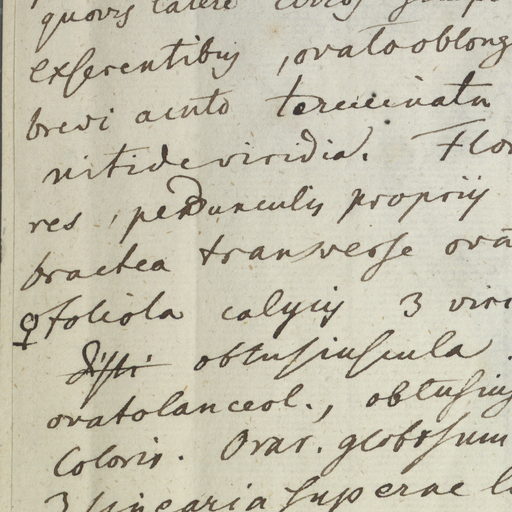 quovis latere
exserentibus, ovatooblong
brevi acuto terminatu
nitideviridia. Flor
res, pedunculis propriis
bractea transverse ova
♀ foliola calycis 3 viri
disti obtusiuscula.
ovatolanceol., obtusius
Coloris. Ovar. globosum
3 linearia superne l